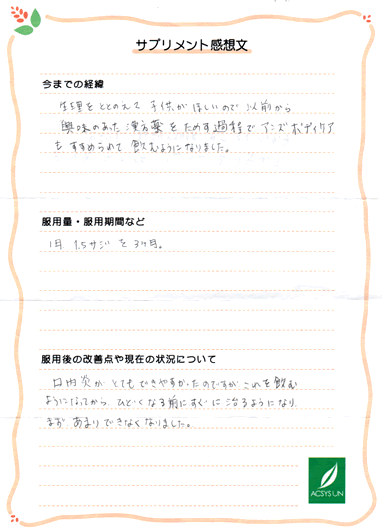 サプリメント感想文
今までの経緯
生理をととのえて 子供がほしいので 以前から
興味のあった漢方薬をためす過程でアンズボディケア
をすすめられて 飲むようになりました。
服用量・服用期間など
1日 1.5サジ を 3ヶ月。
服用後の改善点や現在の状況について
口内炎がとてもできやすかったのですがこれを飲む
ようになってから、ひどくなる前にすぐに治るようになり
まず あまりできなくなりました。
ACSYS UN